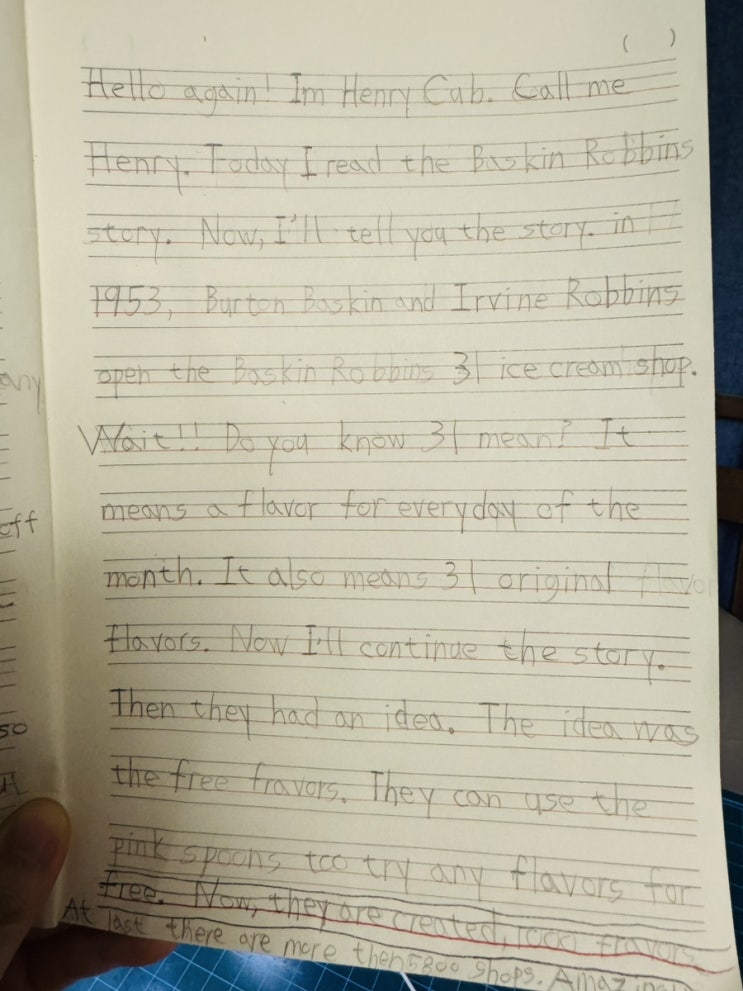 ( )
Hello again! Im Henry Cub. Call me
Henry. Today I read the Baskin Robbins
story. Now, I'll tell you the story. in
1953, Burton Baskin and Irvine Robbins
open the Baskin Robbins 31 ice cream shop.
Wait!! Do you know 31 mean? It
means a flavor for everyday of the
month. It also means 31 original flavo
flavors. Now I'll continue the story.
Then they had an idea. The idea was
the free fravors. They can use the
pink spoons too try any flavors for
free. Now, they are created, 1000 fravors
At last there are more then 5800 shops.
any
off
so